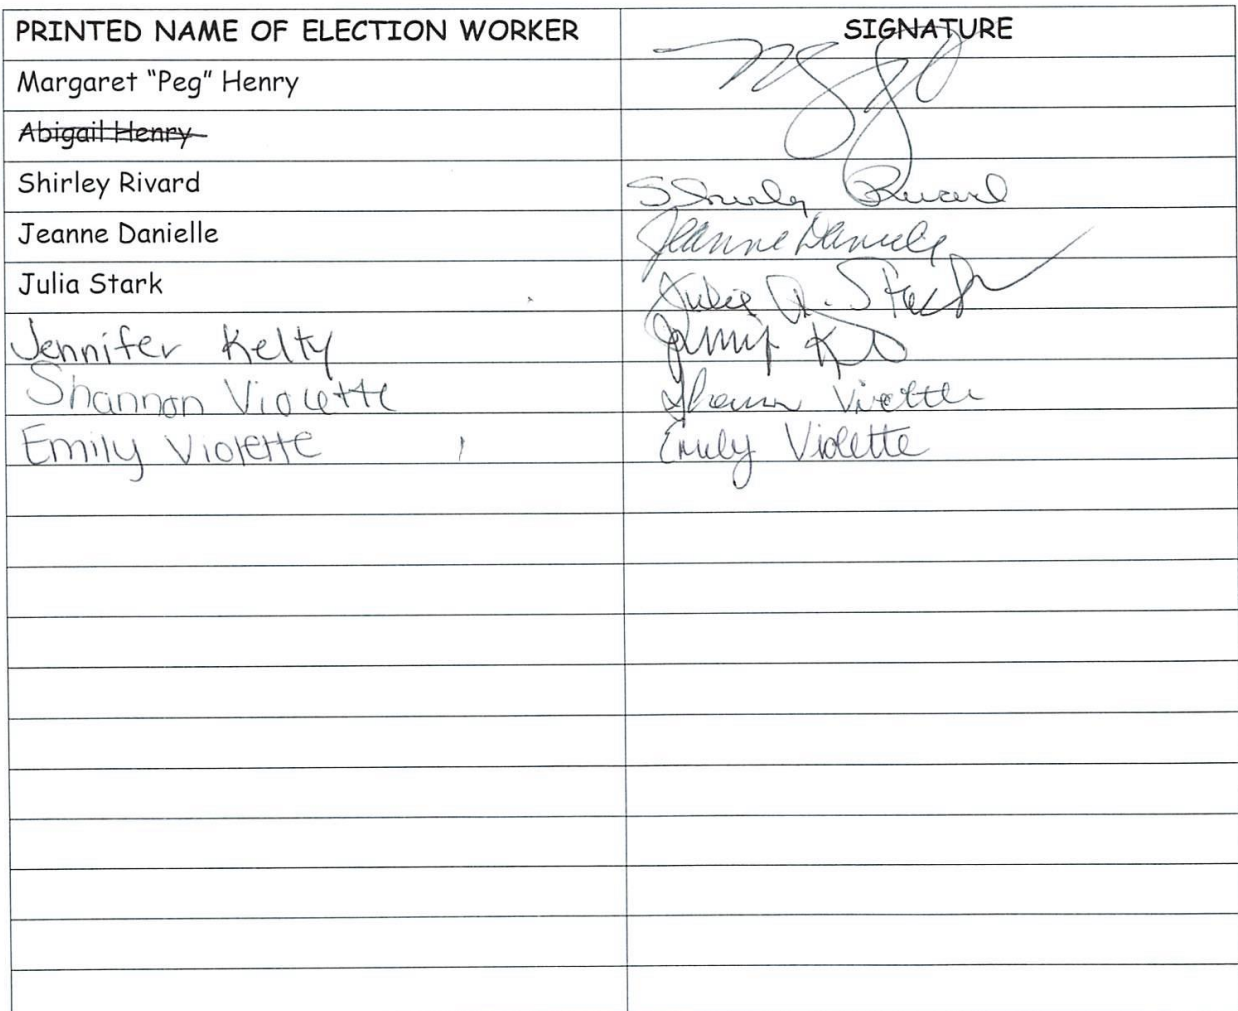 PRINTED NAME OF ELECTION WORKER SIGNATURE
Margaret "Peg" Henry
Abigail Henry
Shirley Rivard Shirley Rivard
Jeanne Danielle Jeanne Danielle
Julia Stark Julia A. Stark
Jennifer Kelty
Shannon Violette Shannon Violette
Emily Violette Emily Violette